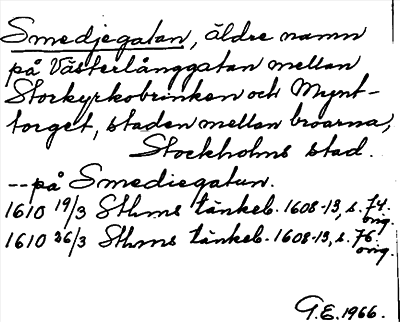 Smedjegatan, äldre namn
på Västerlånggatan mellan
Storkyrkobrinken och Mynt-
torget, staden mellan broarna,
Stockholms stad.
--på Smediegatun.
1610 19/3 Sthms tänkeb. 1608-13, s. 74.
orig.
1610 26/3 Sthms tänkeb. 1608-13, s. 76.
orig.
G.E. 1966.